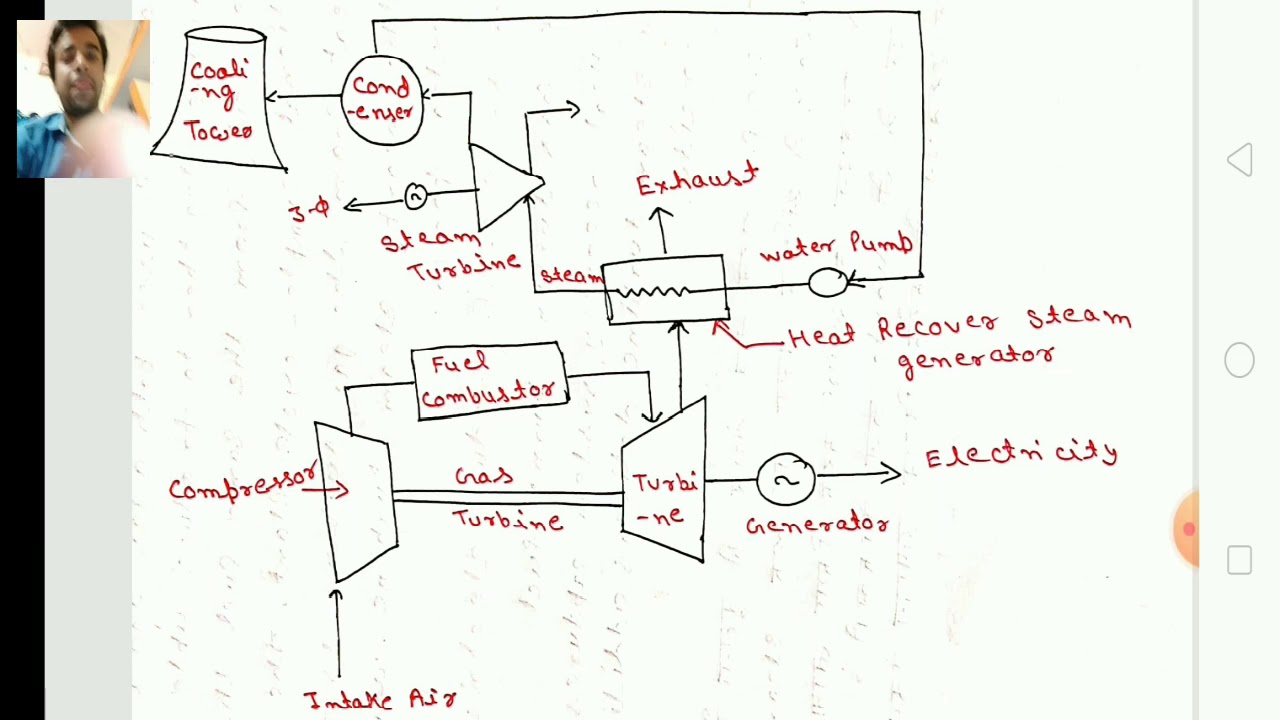 Cooli
-ng
Tower
Cond
-enser
3-Φ
~
Steam
Turbine
Steam
Exhaust
water Pump
Heat Recover Steam
generator
Fuel
Combustor
Compressor
Gas
Turbine
Turbi
-ne
~
Generator
Electricity
Intake Air